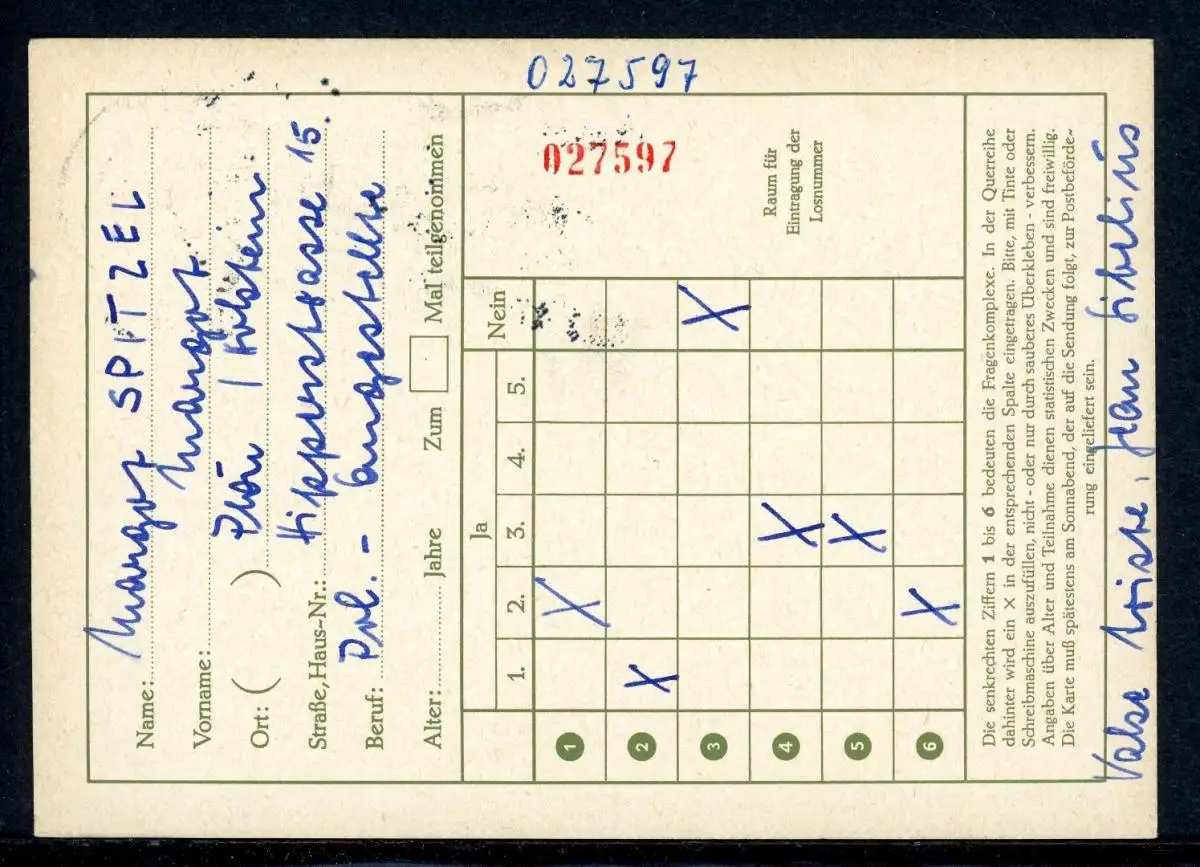 Name: Margot SPITZEL
Vorname: Margot.
Ort: ( ) Plön / Holstein
Straße, Haus-Nr.: Hippenstrasse 15.
Beruf: Pol. - Angestellte
Alter: Jahre Zum Mal teilgenommen
Ja Nein
1. 2. 3. 4. 5.
1 X
2 X
3 X
4 X
5 X
6 X
027597
027597
Raum für
Eintragung der
Losnummer
Die senkrechten Ziffern 1 bis 6 bedeuten die Fragenkomplexe. In der Querreihe
dahinter wird ein × in der entsprechenden Spalte eingetragen. Bitte, mit Tinte oder
Schreibmaschine auszufüllen, nicht - oder nur durch sauberes Überkleben - verbessern.
Angaben über Alter und Teilnahme dienen statistischen Zwecken und sind freiwillig.
Die Karte muß spätestens am Sonnabend, der auf die Sendung folgt, zur Postbeförde-
rung eingeliefert sein.
Valse triste, Jean Sibelius